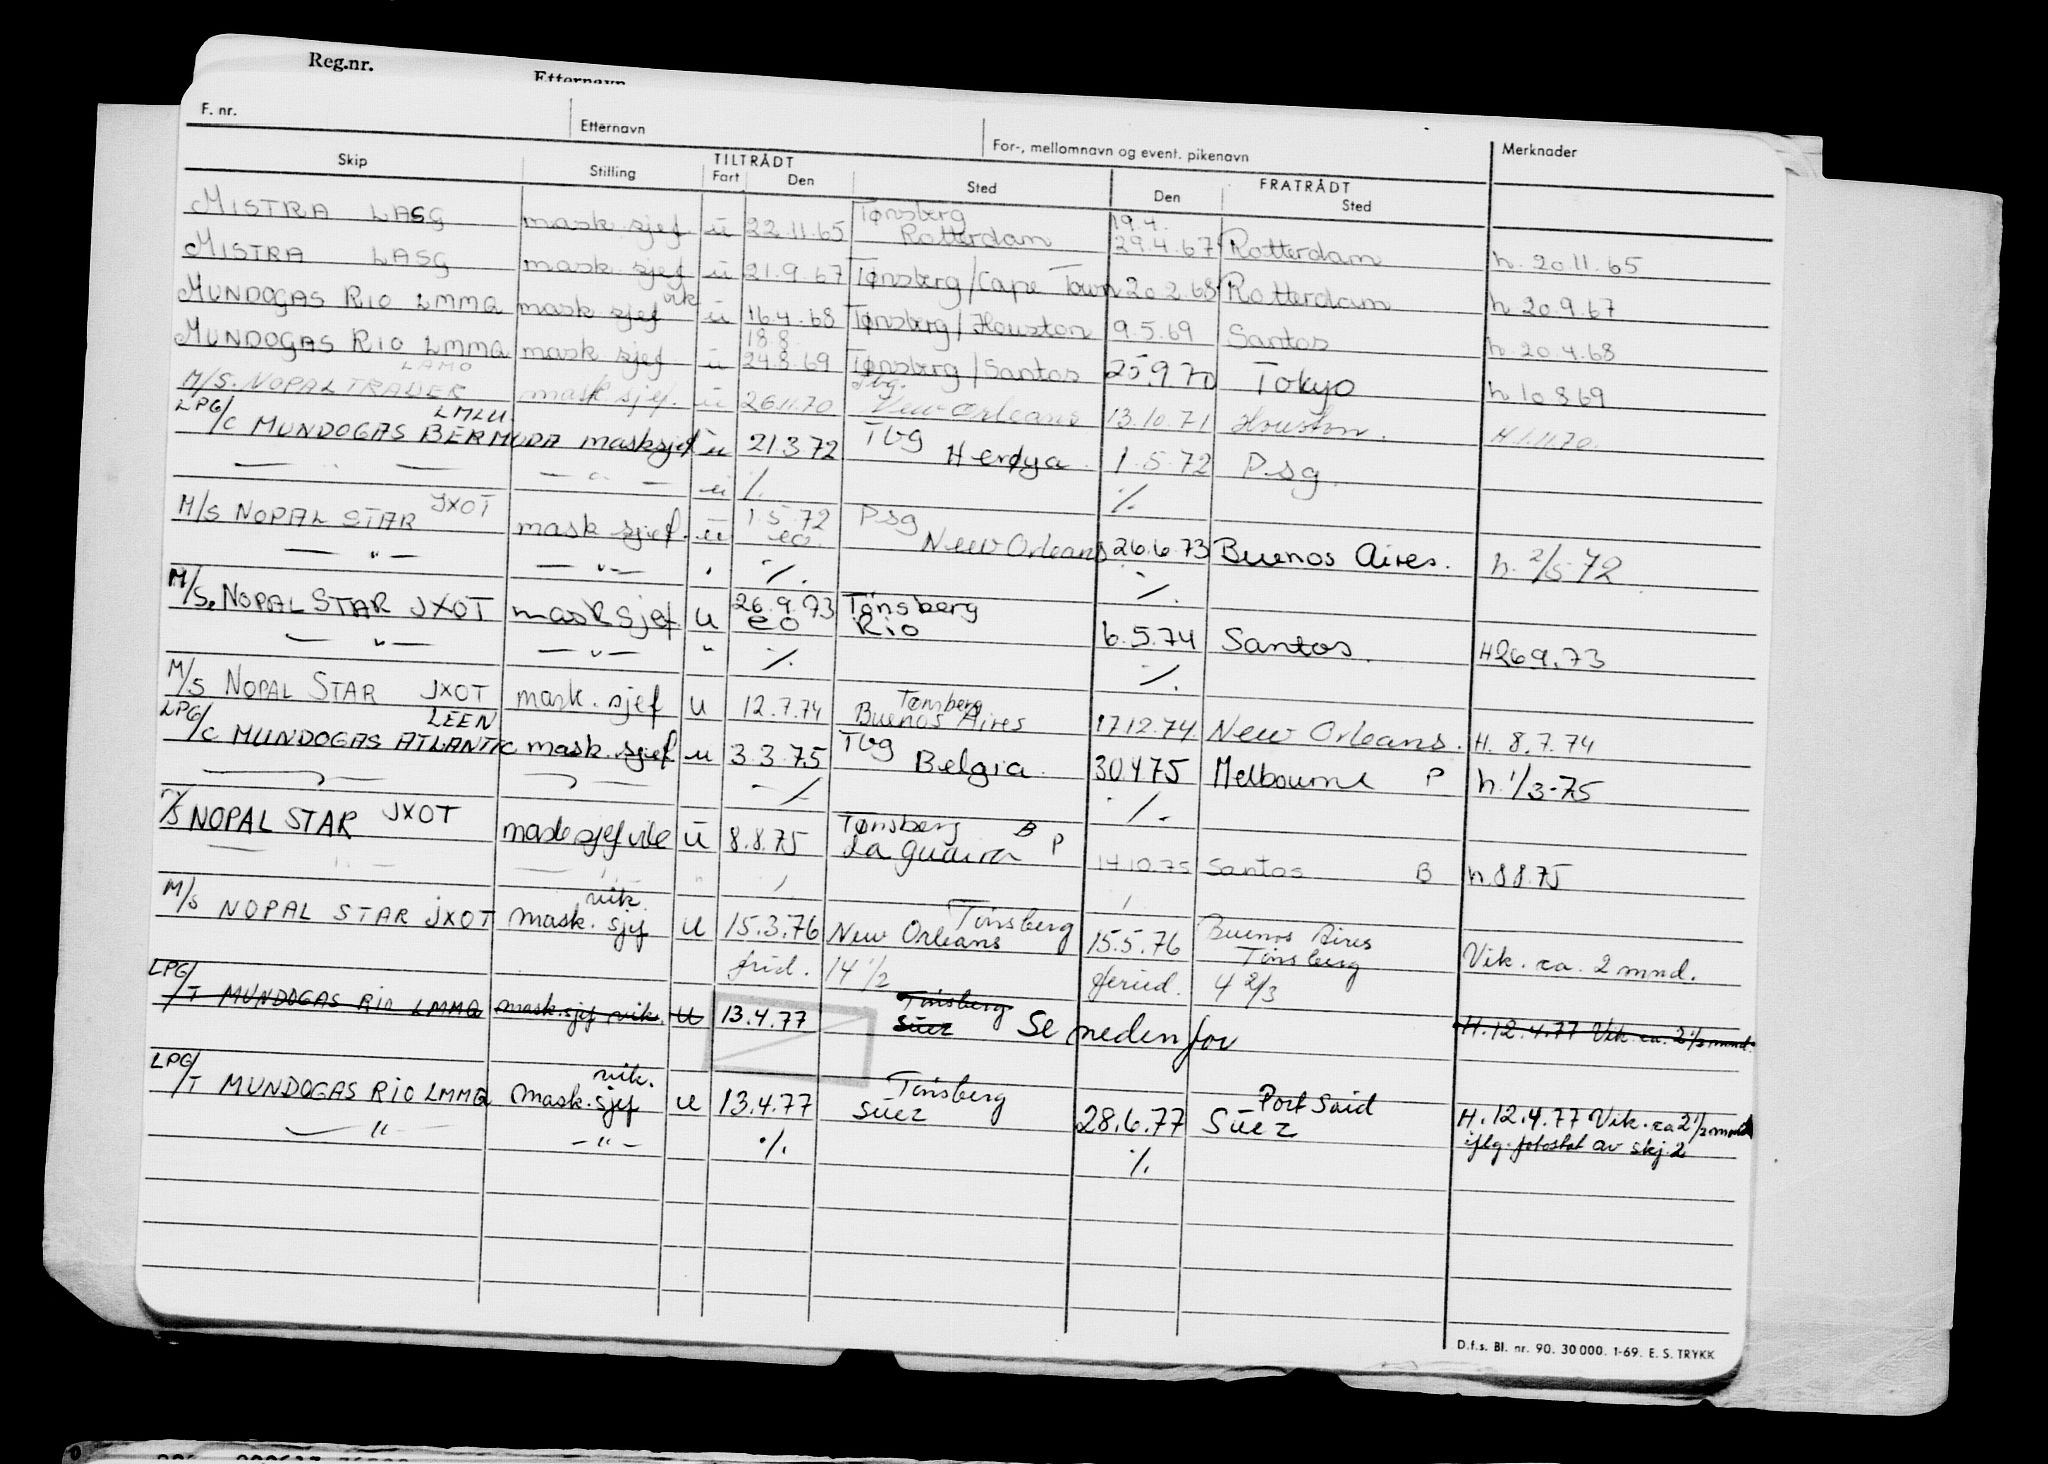 Reg.nr. Etternavn
F. nr. Etternavn For-, mellomnavn og event. pikenavn Merknader
Skip Stilling TILTRÅDT Fart Den Sted FRATRÅDT Den Sted
MISTRA LASG mask. sjef ü 22.11.65 Tønsberg Rotterdam 19.4. 29.4.67 Rotterdam h. 20.11.65
MISTRA LASG mask. sjef ü 21.9.67 Tønsberg/Cape Town 20.2.68 Rotterdam h 20.9.67
MUNDOGAS RIO LMMQ mask sjef vik ü 16.4.68 Tønsberg/Houston 9.5.69 Santos h. 20.4.68
MUNDOGAS RIO LMMQ mask. sjef. ü 18.8. 24.8.69 Tønsberg/Santos 25.9.70 Tokyo h 10 8 69
M/S. NOPAL TRADER LAMO mask. sjef. ü 26.11.70 Tbg. New Orleans 13.10.71 Houston. H.1.11.70.
LPG/C MUNDOGAS BERMUDA LMLU masksjef u 21.3.72 Tbg Herøya. 1.5.72 P.sg.
— " — — " — ü %. %.
M/S NOPAL STAR JXOT mask sjef. ü 1.5.72 eo. Psg New Orleans 26.6.73 Buenos Aires. h. 2/5 72
— " — — " — " %. %.
M/S. NOPAL STAR JXOT mask sjef. u 26.9.73 eo Tønsberg Rio 6.5.74 Santos. H 26 9.73
— " — — " — " %. %.
M/S NOPAL STAR JXOT mask. sjef u 12.7.74 Tønsberg Buenos Aires 17.12.74 New Orleans. H. 8.7.74
LPG/C MUNDOGAS ATLANTIC LEEN mask. sjef u 3.3.75 Tbg Belgia. 30.4.75 Melbourne P h. 1/3-75
— " — — " — %. %.
M/S NOPAL STAR JXOT mask sjef vik ü 8.8.75 Tønsberg B La Guaira P 14.10.75 Santos B h. 8 8.75
— " — — " — "
M/S NOPAL STAR JXOT mask. sjef vik. u 15.3.76 Tönsberg New Orleans 15.5.76 Buenos Aires Tönsberg Vik. ca. 2 mnd.
frid. 14 1/2 feried. 4 2/3
LPG/T MUNDOGAS RIO LMMQ mask. sjef vik. u 13.4.77 Tönsberg Süez Se nedenfor H.12.4.77 Vik. ca. 2 1/2 mnd.
LPG/T MUNDOGAS RIO LMMQ mask. sjef vik. u 13.4.77 Tönsberg Süez 28.6.77 Port Said Süez H.12.4.77 Vik. ca 2 1/2 mnd
— " — — " — %. %. iflg. fotostat av skj. 2
D.f.s. Bl. nr. 90. 30 000. 1-69. E. S. TRYKK